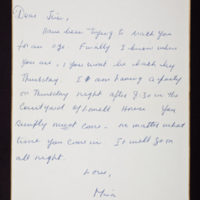 Dear Jim,
Have been trying to reach you
for an age. Finally I know where
you are, & you wont be back by
Thursday I am having a party
on Thursday night after 9.30 in the
Courtyard of House You
simply must come - no matter what
time you come in It will go on
all night.
Love,